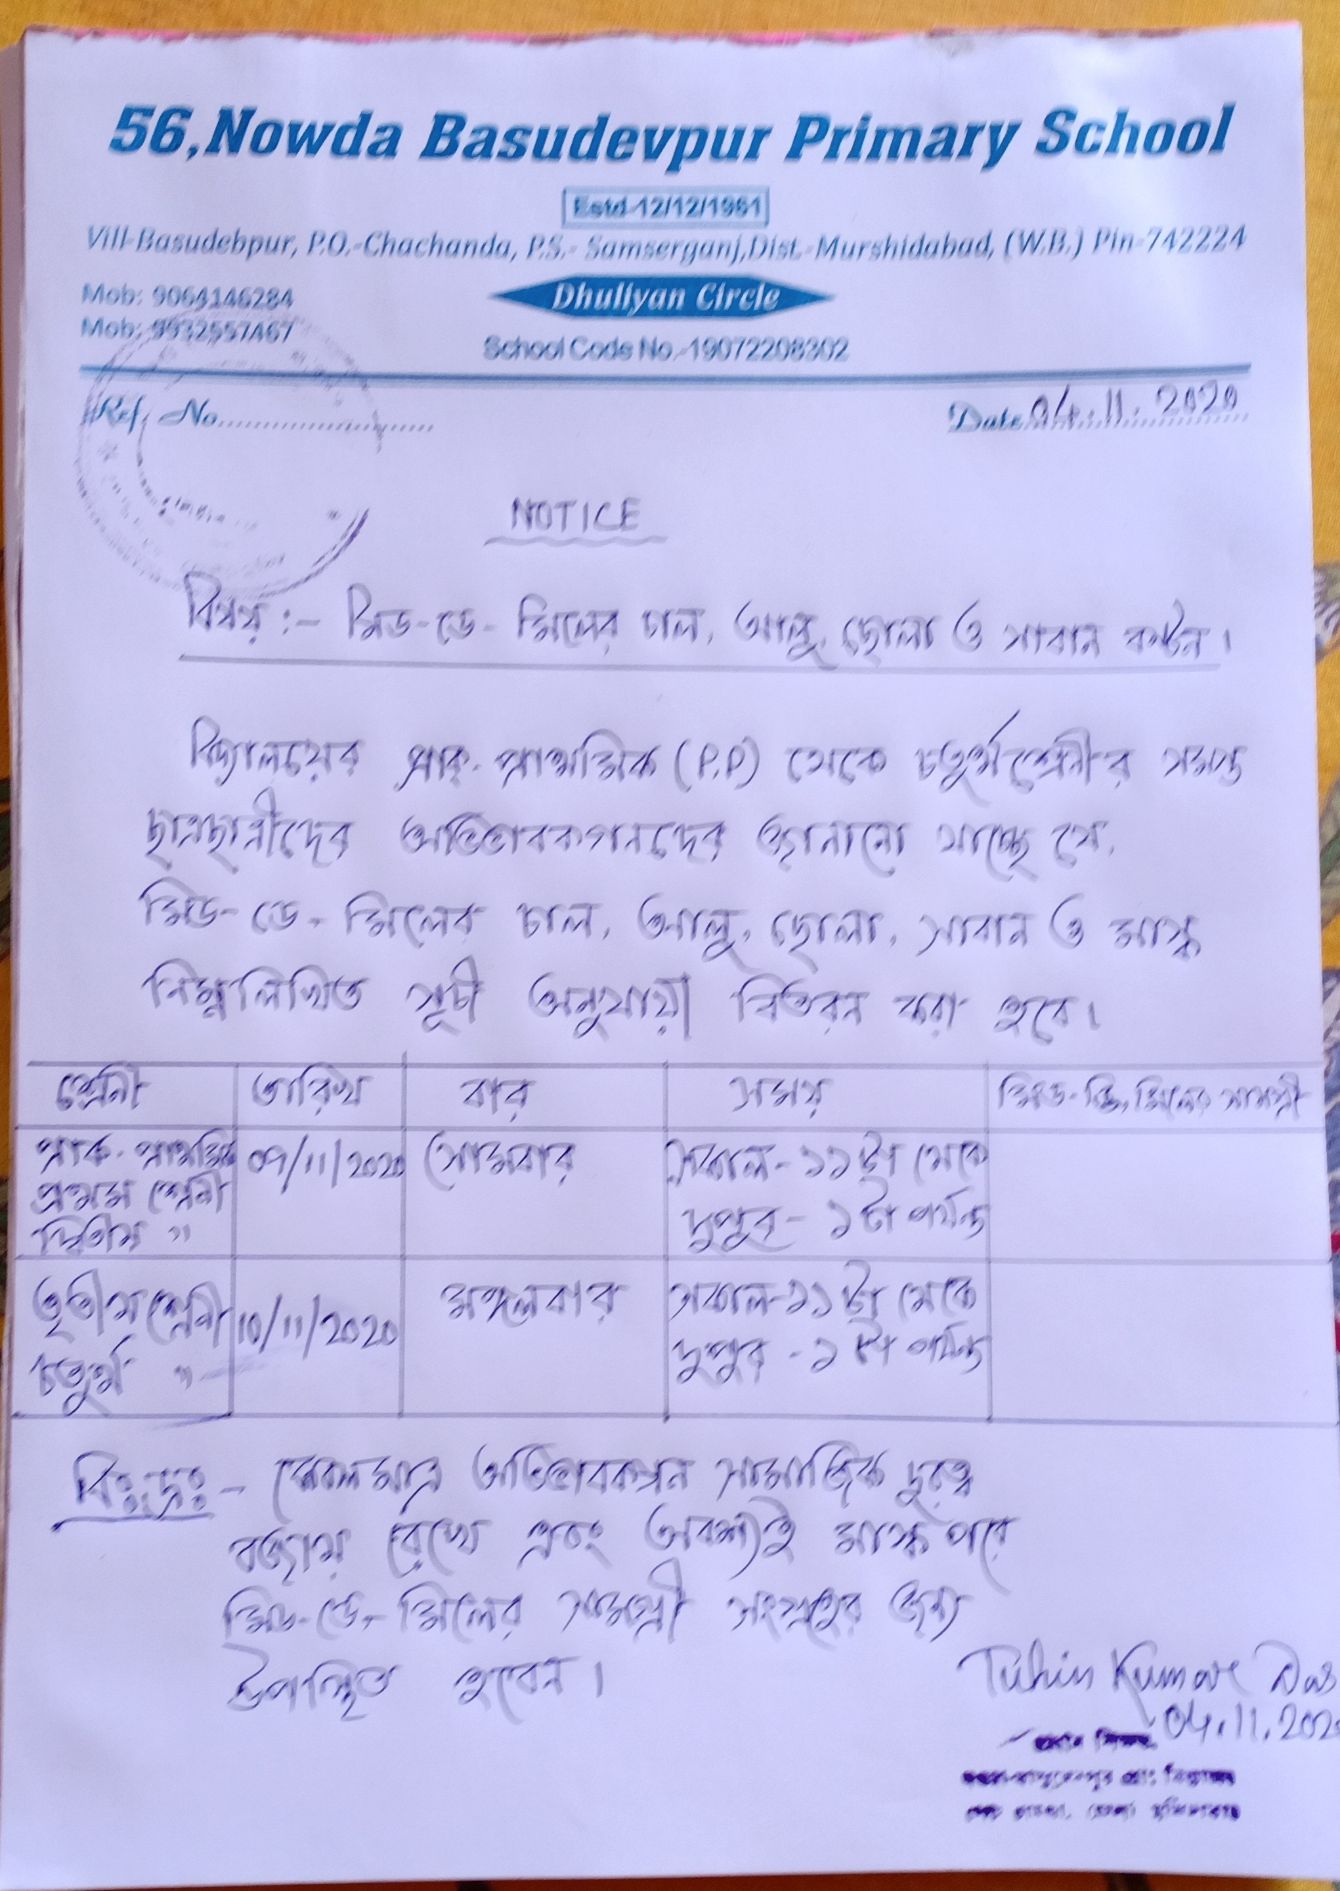 56,Nowda Basudevpur Primary School
Estd-12/12/1961
Vill-Basudebpur, P.O.-Chachanda, P.S.- Samserganj,Dist.-Murshidabad, (W.B.) Pin-742224
Mob: 9064146284
Dhuliyan Circle
Mob: 9932557467
School Code No.-19072208302
Ref. No
Date 04.11.2020
NOTICE
বিষয় :- মিড-ডে-মিলের চাল, আলু, ছোলা ও সাবান বন্টন।
বিদ্যালয়ের প্রাক্-প্রাথমিক (P.P) থেকে চতুর্থশ্রেনীর সমস্ত
ছাত্রছাত্রীদের অভিভাবকগনদের জানানো যাচ্ছে যে,
মিড-ডে-মিলের চাল, আলু, ছোলা, সাবান ও মাস্ক
নিম্নলিখিত সূচী অনুযায়ী বিতরন করা হবে।
শ্রেনী তারিখ বার সময় মিড-ডে-মিলের সামগ্রী
প্রাক-প্রাথমিক 09/11/2020 সোমবার সকাল-১১টা থেকে
প্রথম শ্রেনী
দুপুর-১টা পর্যন্ত
দ্বিতীয় "
তৃতীয় শ্রেনী 10/11/2020 মঙ্গলবার সকাল-১১টা থেকে
চতুর্থ " দুপুর-১টা পর্যন্ত
বিঃদ্রঃ- কেবলমাত্র অভিভাবকগন সামাজিক দুরত্ব
বজায় রেখে এবং অবশ্যই মাস্ক পরে
মিড-ডে-মিলের সামগ্রী সংগ্রহের জন্য
উপস্থিত হবেন।
Tuhin Kumar Das
04.11.2020
প্রধান শিক্ষক